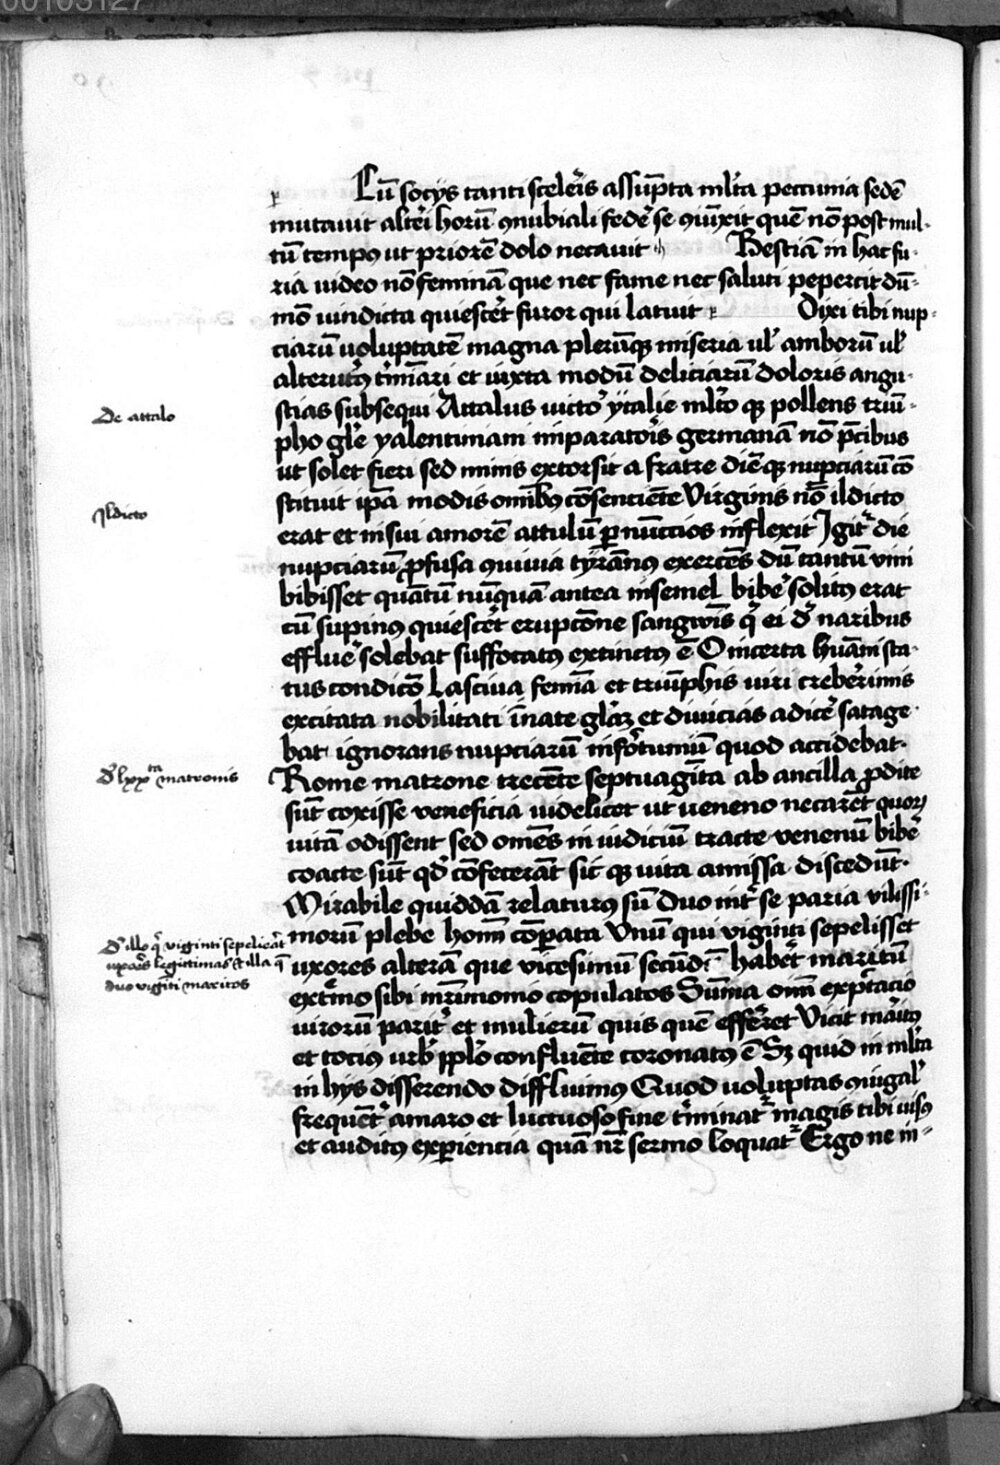 00103127
Cū socijs tanti scelēis assūpta mlta peccunia sedē
mutauit altēi horū ꝯnubiali fedē se ꝯiūxit quē nō post mul-
tū tempꝰ ut priorē dolo necauit Bestiā in hac fu-
ria uideo nō feminā que nec fame nec saluti pepercit dū-
mō uindicta quiescēt furor qui latuit Dixi tibi nup-
ciarū uoluptatē magna plerūqꝫ miseria ul' amborū ul'
alterutrꝰ t'minari et iuxta modū deliciarū doloris angu-
stias subsequi Attalus uictor ytalie mlto qꝫ pollens triū-
De attalo
pho gl'e valentiniani imparatoris germanā nō p̄cibus
ut solet fieri sed minis extorsit a fratre diēqꝫ nupciarū cō
stituit ip̄a modis omībꝰ cōsenciēte Virginis nō ildicto
Ildicto
erat et in sui amorē attulū ꝑ nūccios inflexit Igit' die
nupciarū ꝓfusa ꝯuiuia tyrānꝰ exercēs dū tantū vini
bibisset quātū nūquā antea insemel bibe' solitꝰ erat
cū supinꝰ quiescēt erupcōne sangwīs q' ei d' naribus
efflue' solebat suffocatꝰ extinctꝰ ē O incerta huāni sta-
tus condicō Lasciua femīa et triūphis uiri creberimis
excitata nobilitati īnate gl'aꝫ et diuicias adice' satage-
bat ignorans nupciarū infortuniū quod accidebat
Rome matrone trecēte septuagīta ab ancilla ꝓdite
D' lxxta matronis
sūt coxisse veneficia uidelicet ut ueneno necarēt quoꝝ
uitā odissent sed omēs in iudiciū tracte venenū bibe'
coacte sūt qd' cōfecerāt sic qꝫ uita amissa discedūt
Mirabile quiddā relaturꝰ sū Duo int' se paria vilissi-
morū plebe homī cōꝑata Vnū qui viginti sepelisset
D' illo q' viginti sepelierat
uxores alterā que vicesimū secūdū habēt maritū
uxores legittimas et illa q̄
duo vigīti maritos
ext'mo sibi mr̄imonio copulatos Sūma omī exp̄ctacio
uirorū parit' et mulierū quis quē efferret Vicit maitꝰ
et tociꝰ urb' pplo confluēte coronatꝰ ē Sꝫ quid in mlta
in hijs disserendo diffluimꝰ Quod uoluptas ꝯiugal'
frequēt' amaro et luctuoso fine t'minat' magis tibi uisꝰ
et auditꝰ exꝑiencia quā nr̄ sermo loquat' Ergo ne in-